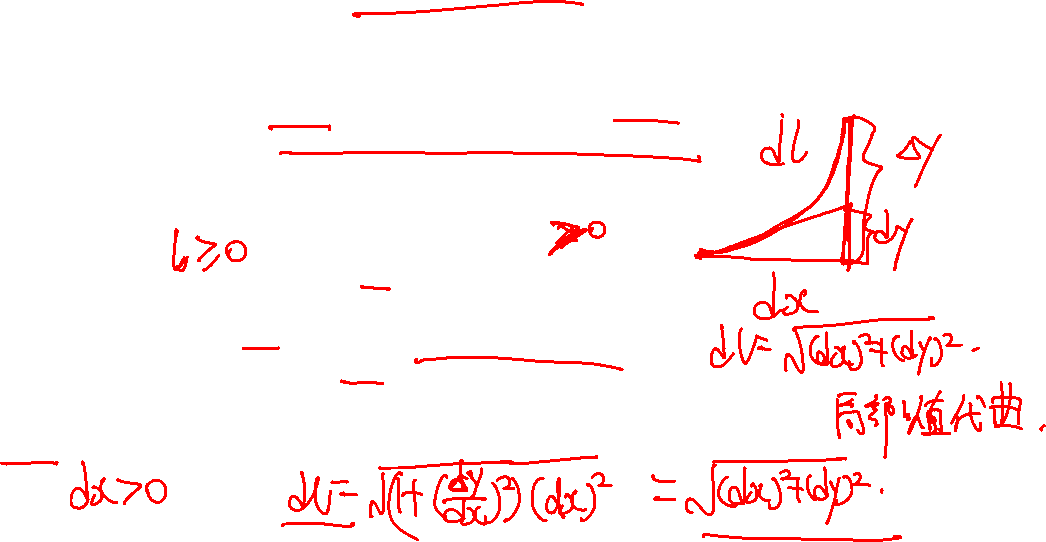 dl
Δy
b≥0
≥0
dy
dx
dl=√(dx)²+(dy)².
局部以值代曲.
dx>0
dl=√(1+(Δy/dx)²)(dx)² =√(dx)²+(dy)².